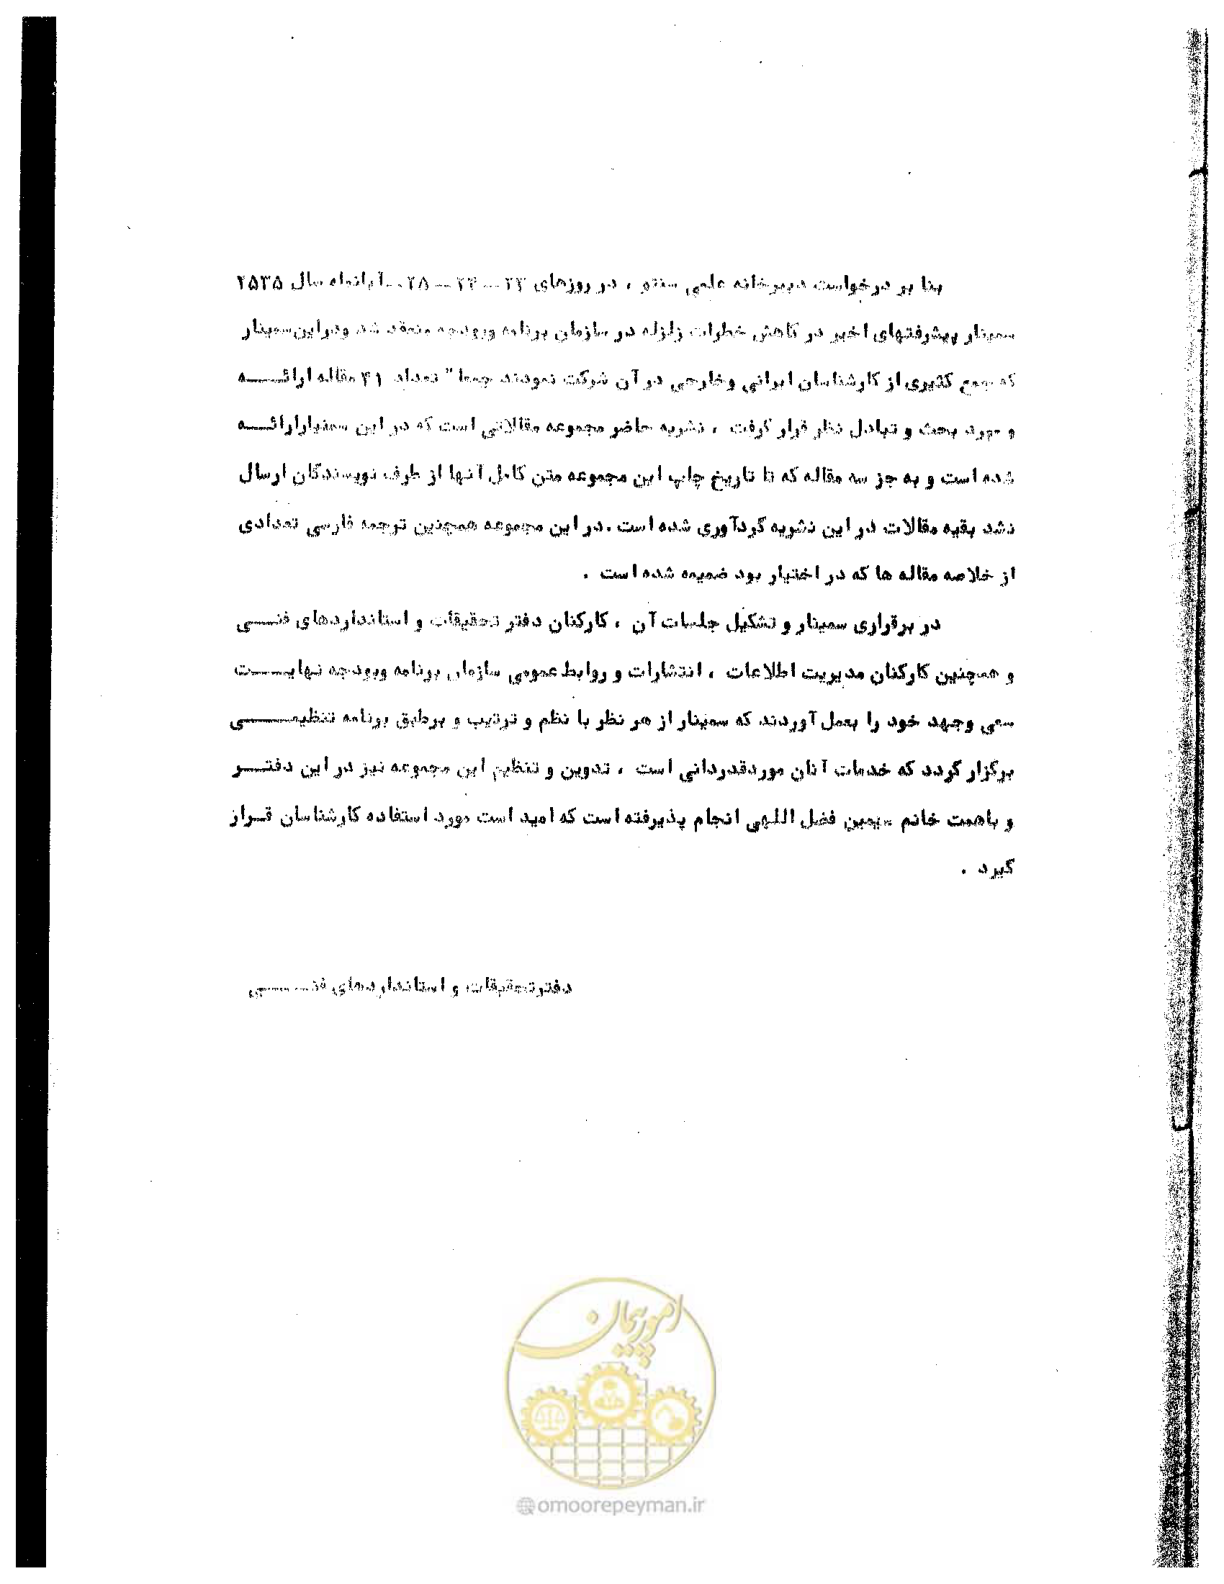 بنا بر درخواست دبیرخانه علمی سنتو ، در روزهای ۲۳ ــ ۲۴ ــ آبانماه سال ۲۵۳۵
سمینار پیشرفتهای اخیر در کاهش خطرات زلزله در سازمان برنامه وبودجه منعقد شد ودراین‌سمینار
که جمع کثیری از کارشناسان ایرانی وخارجی در آن شرکت نمودند جمعا" تعداد ۴۱ مقاله ارائـــه
و مورد بحث و تبادل نظر قرار گرفت ، نشریه حاضر مجموعه مقالاتی است که در این سمنیارارائـــه
شده است و به جز سه مقاله که تا تاریخ چاپ این مجموعه متن کامل آنها از طرف نویسندگان ارسال
نشد بقیه مقالات در این نشریه گردآوری شده است .در این مجموعه همچنین ترجمه فارسی تعدادی
از خلاصه مقاله ها که در اختیار بود ضمیمه شده است .
در برقراری سمینار و تشکیل جلسات آن ، کارکنان دفتر تحقیقات و استانداردهای فنـــی
و همچنین کارکنان مدیریت اطلاعات ، انتشارات و روابط عمومی سازمان برنامه وبودجه نهایـــت
سعی وجهد خود را بعمل آوردند که سمینار از هر نظر با نظم و ترتیب و برطبق برنامه تنظیمـــی
برگزار گردد که خدمات آنان موردقدردانی است ، تدوین و تنظیم این مجموعه نیز در این دفتـــر
و باهمت خانم سیمین فضل اللهی انجام پذیرفته است که امید است مورد استفاده کارشناسان قــرار
گیرد .
دفترتحقیقات و استانداردهای فنـــی
امور پیمان
@omoorepeyman.ir